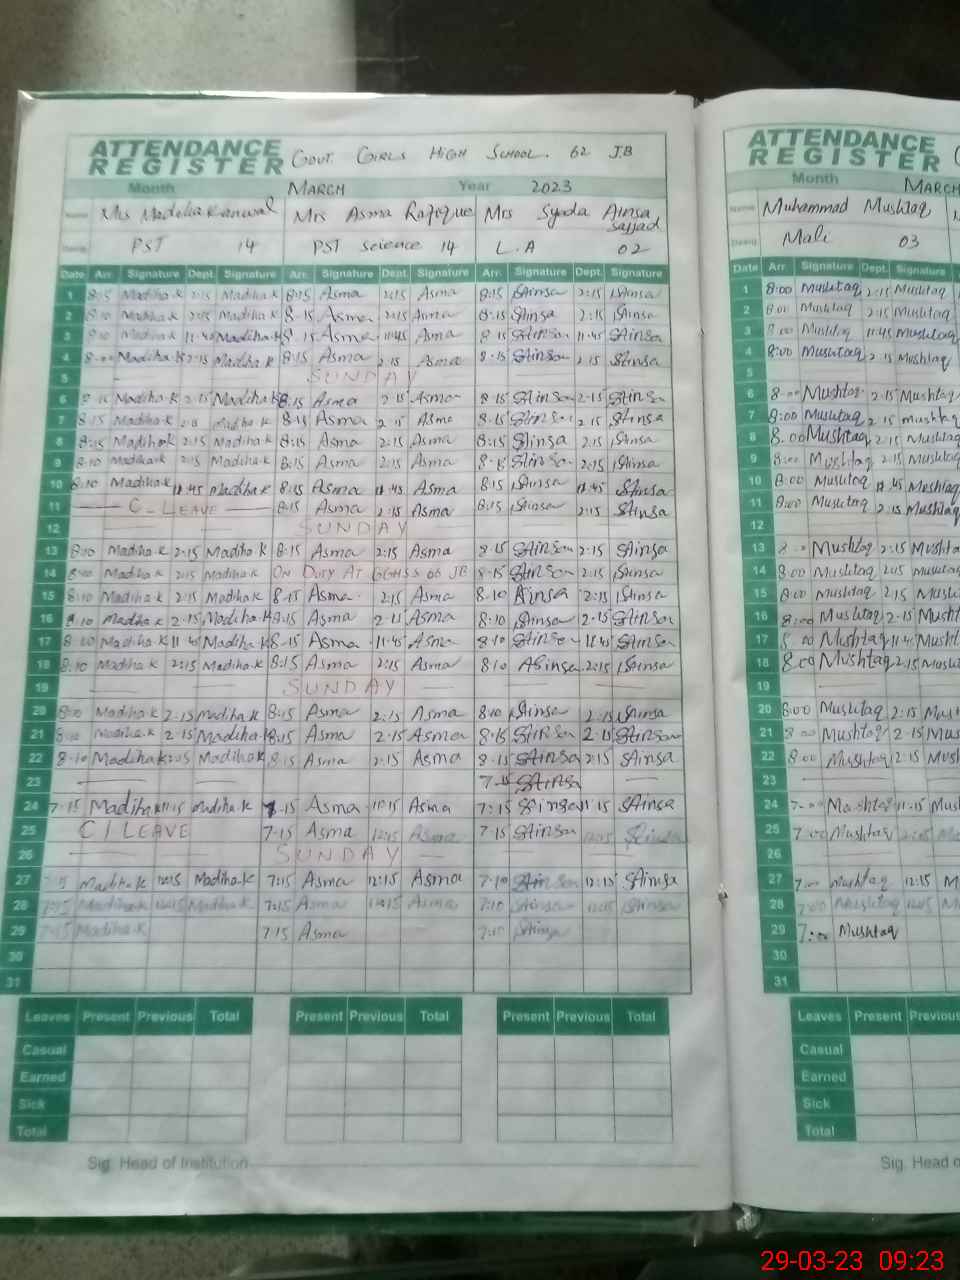 ATTENDANCE REGISTER GOVT. GIRLS HIGH SCHOOL. 62 J.B
Month MARCH Year 2023
Name Mrs Madeha Kanwal Mrs Asma Rafique Mrs Syeda Ainsa Sajjad
Desig PST 14 PST Science 14 L.A 02
Date Arr. Signature Dept. Signature Arr. Signature Dept. Signature Arr. Signature Dept. Signature
1 8:15 Madiha.K 2:15 Madiha.K 8:15 Asma 2:15 Asma 8:15 SAinsa 2:15 SAinsa
2 8:10 Madiha.K 2:15 Madiha.K 8.15 Asma 2:15 Asma 8:15 SAinsa 2:15 SAinsa
3 8:10 Madiha.K 11:45 Madiha.K 8.15 Asma 11:45 Asma 8:15 SAinsa 11:45 SAinsa
4 8:00 Madiha.K 2:15 Madiha.K 8:15 Asma 2:15 Asma 8:15 SAinsa 2:15 SAinsa
5 SUNDAY
6 8:15 Madiha.K 2:15 Madiha.K 8:15 Asma 2:15 Asma 8.15 SAinsa 2:15 SAinsa
7 8:15 Madiha.K Madiha.K 8:15 Asma 2:15 Asma 8.15 SAinsa 2:15 SAinsa
8 8:15 Madiha.K 2:15 Madiha.K 8:15 Asma 2:15 Asma 8:15 SAinsa 2:15 SAinsa
9 8:10 Madiha.K 2:15 Madiha.K 8:15 Asma 2:15 Asma 8.15 SAinsa 2:15 SAinsa
10 8:10 Madiha.K 11:45 Madiha.K 8:15 Asma 11:45 Asma 8:15 SAinsa 11:45 SAinsa
11 C-LEAVE 8:15 Asma 2:15 Asma 8:15 SAinsa 2:15 SAinsa
12 SUNDAY
13 8:10 Madiha.K 2:15 Madiha.K 8:15 Asma 2:15 Asma 8.15 SAinsa 2:15 SAinsa
14 8:10 Madiha.K 2:15 Madiha.K ON DUTY AT GGHSS 66 JB 8.15 SAinsa 2:15 SAinsa
15 8:10 Madiha.K 2:15 Madiha.K 8.15 Asma 2:15 Asma 8.10 Ainsa 2:15 SAinsa
16 8.10 Madiha.K 2.15 Madiha.K 8:15 Asma 2.15 Asma 8:10 SAinsa 2.15 SAinsa
17 8:00 Madiha.K 11:45 Madiha.K 8.15 Asma 11:45 Asma 8:10 SAinsa 11:45 SAinsa
18 8:10 Madiha.K 2:15 Madiha.K 8:15 Asma 2:15 Asma 8:10 ASinsa 2:15 SAinsa
19 SUNDAY
20 8:00 Madiha.K 2:15 Madiha.K 8:15 Asma 2:15 Asma 8:10 SAinsa 2:15 SAinsa
21 8:10 Madiha.K 2.15 Madiha.K 8:15 Asma 2.15 Asma 8.15 SAinsa 2.15 SAinsa
22 8.10 Madiha.K 2:15 Madiha.K 8:15 Asma 2:15 Asma 8.15 SAinsa 2:15 SAinsa
23 7.15 SAinsa
24 7.15 Madiha.K 11:15 Madiha.K 7.15 Asma 11:15 Asma 7:15 SAinsa 11:15 SAinsa
25 C/LEAVE 7.15 Asma 12:15 Asma 7.15 SAinsa 12:15 SAinsa
26 SUNDAY
27 7:15 Madiha.K 12:15 Madiha.K 7:15 Asma 12:15 Asma 7:10 SAinsa 12:15 SAinsa
28 7:15 Madiha.K 12:15 Madiha.K 7:15 Asma 12:15 Asma 7:10 SAinsa 12:15 SAinsa
29 7:15 Madiha.K 7:15 Asma 7:10 SAinsa
30
31
Leaves Present Previous Total Present Previous Total Present Previous Total
Casual
Earned
Sick
Total
Sig. Head of Institution
ATTENDANCE REGISTER
Month MARCH
Name Muhammad Mushtaq
Desig Mali 03
Date Arr. Signature Dept. Signature
1 8:00 Mushtaq 2:15 Mushtaq
2 8:00 Mushtaq 2:15 Mushtaq
3 8:00 Mushtaq 11:45 Mushtaq
4 8:00 Mushtaq 2:15 Mushtaq
5
6 8:00 Mushtaq 2:15 Mushtaq
7 8:00 Mushtaq 2:15 Mushtaq
8 8.00 Mushtaq 2:15 Mushtaq
9 8:00 Mushtaq 2:15 Mushtaq
10 8:00 Mushtaq 11:45 Mushtaq
11 8:00 Mushtaq 2:15 Mushtaq
12
13 8:00 Mushtaq 2:15
14 8:00 Mushtaq 2:15
15 8:00 Mushtaq 2:15
16 8:00 Mushtaq 2:15
17 8:00 Mushtaq 11:45
18 8:00 Mushtaq 2:15
19
20 8:00 Mushtaq 2:15
21 8:00 Mushtaq 2.15
22 8:00 Mushtaq 2:15
23
24 7:00 Mushtaq 11:15
25 7:00 Mushtaq
26
27 7:00 Mushtaq 12:15
28 7:00 Mushtaq 12:15
29 7:00 Mushtaq
30
31
Leaves Present Previous
Casual
Earned
Sick
Total
Sig. Head
29-03-23 09:23